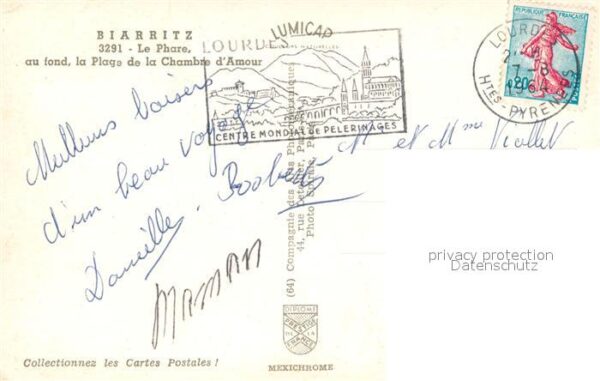 BIARRITZ
3291 - Le Phare,
au fond, la Plage de la Chambre d'Amour
LOURDES
LUMICAP
CENTRE MONDIAL de PELERINAGES
REPUBLIQUE FRANÇAISE
0,20
LOURDES
7-8
1964
Htes-PYRENEES
Meilleurs baisers
d'un beau voyage
Danielle. Robert
Maman
M et Mme Viallet
(64) Compagnie des Arts Photomécaniques
44, rue Letellier, Paris
Photo
privacy protection
Datenschutz
DIPLOME
PRESTIGE
DE LA
FRANCE
Collectionnez les Cartes Postales !
MEXICHROME